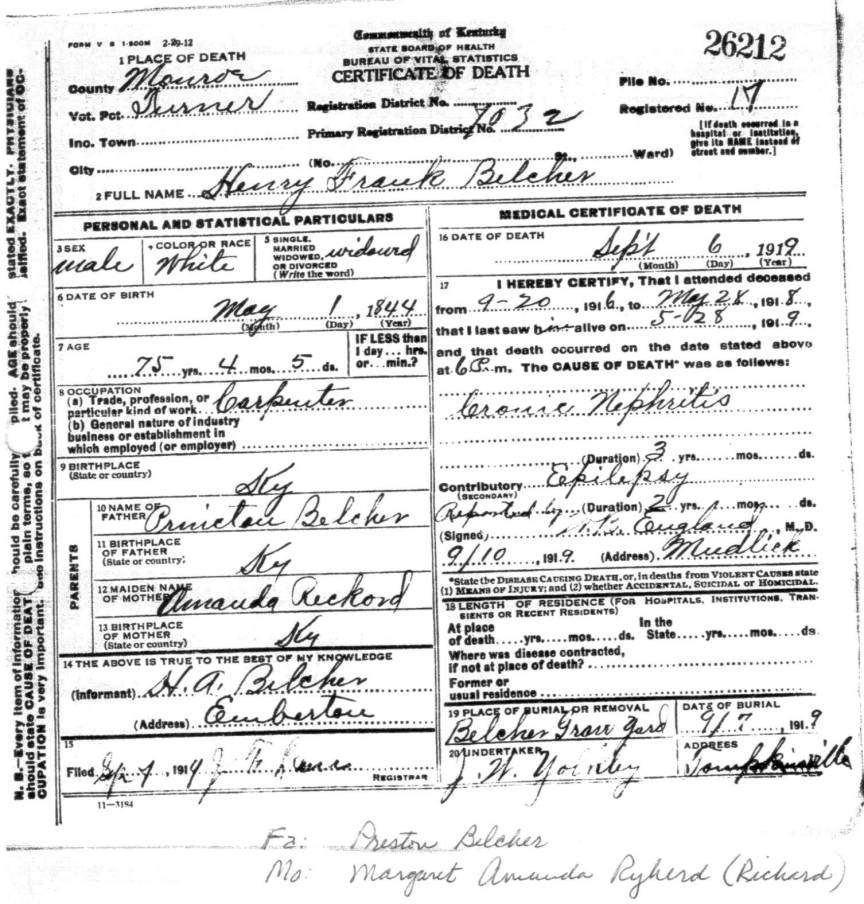 FORM V S 1-500M 2-29-12
Commonwealth of Kentucky
STATE BOARD OF HEALTH
BUREAU OF VITAL STATISTICS
CERTIFICATE OF DEATH
26212
1 PLACE OF DEATH
County Monroe
Vot. Pct. Turner
Inc. Town
City
Registration District No.
Primary Registration District No. 7032
(No. Ward)
File No.
Registered No. 17
[If death occurred in a
hospital or institution,
give its NAME instead of
street and number.]
2 FULL NAME Henry Frank Belcher
PERSONAL AND STATISTICAL PARTICULARS
3 SEX
male
4 COLOR OR RACE
White
5 SINGLE,
MARRIED
WIDOWED,
OR DIVORCED
(Write the word)
widowd
6 DATE OF BIRTH
May 1, 1844
(Month) (Day) (Year)
7 AGE
75 yrs. 4 mos. 5 ds.
IF LESS than
1 day... hrs.
or... min.?
8 OCCUPATION
(a) Trade, profession, or
particular kind of work Carpenter
(b) General nature of industry
business or establishment in
which employed (or employer)
9 BIRTHPLACE
(State or country)
Ky
PARENTS
10 NAME OF
FATHER Princton Belcher
11 BIRTHPLACE
OF FATHER
(State or country)
Ky
12 MAIDEN NAME
OF MOTHER Amanda Reckord
13 BIRTHPLACE
OF MOTHER
(State or country)
Ky
14 THE ABOVE IS TRUE TO THE BEST OF MY KNOWLEDGE
(Informant) H. A. Belcher
(Address) Emberton
15
Filed , 191
REGISTRAR
11-3184
MEDICAL CERTIFICATE OF DEATH
16 DATE OF DEATH
Sept 6, 1919
(Month) (Day) (Year)
17 I HEREBY CERTIFY, That I attended deceased
from 9-20, 1916, to May 28, 1918,
that I last saw him alive on 5-28, 1919,
and that death occurred on the date stated above
at 6 P.m. The CAUSE OF DEATH* was as follows:
Cronic Nephritis
(Duration) 3 yrs. mos. ds.
Contributory Epilepsy
(SECONDARY)
Reported by (Duration) 2 yrs. mos. ds.
(Signed) England, M. D.
9/10, 1919 (Address) Mudlick
*State the DISEASE CAUSING DEATH, or, in deaths from VIOLENT CAUSES state
(1) MEANS OF INJURY; and (2) whether ACCIDENTAL, SUICIDAL or HOMICIDAL.
18 LENGTH OF RESIDENCE (FOR HOSPITALS, INSTITUTIONS, TRAN-
SIENTS OR RECENT RESIDENTS)
At place
of death yrs. mos. ds.
In the
State yrs. mos. ds.
Where was disease contracted,
if not at place of death?
Former or
usual residence
19 PLACE OF BURIAL OR REMOVAL
Belcher Grave Yard
DATE OF BURIAL
9/7, 1919
20 UNDERTAKER
J. W.
ADDRESS
Tompkinsville
N. B.—Every item of information should be carefully plied. AGE should stated EXACTLY. PHYSICIANS
should state CAUSE OF DEAT plain terms, so t may be properly ssified. Exact statement of OC-
CUPATION is very important. See instructions on back of certificate.
Fa: Preston Belcher
Mo: Margaret Amanda Ryherd (Richard)